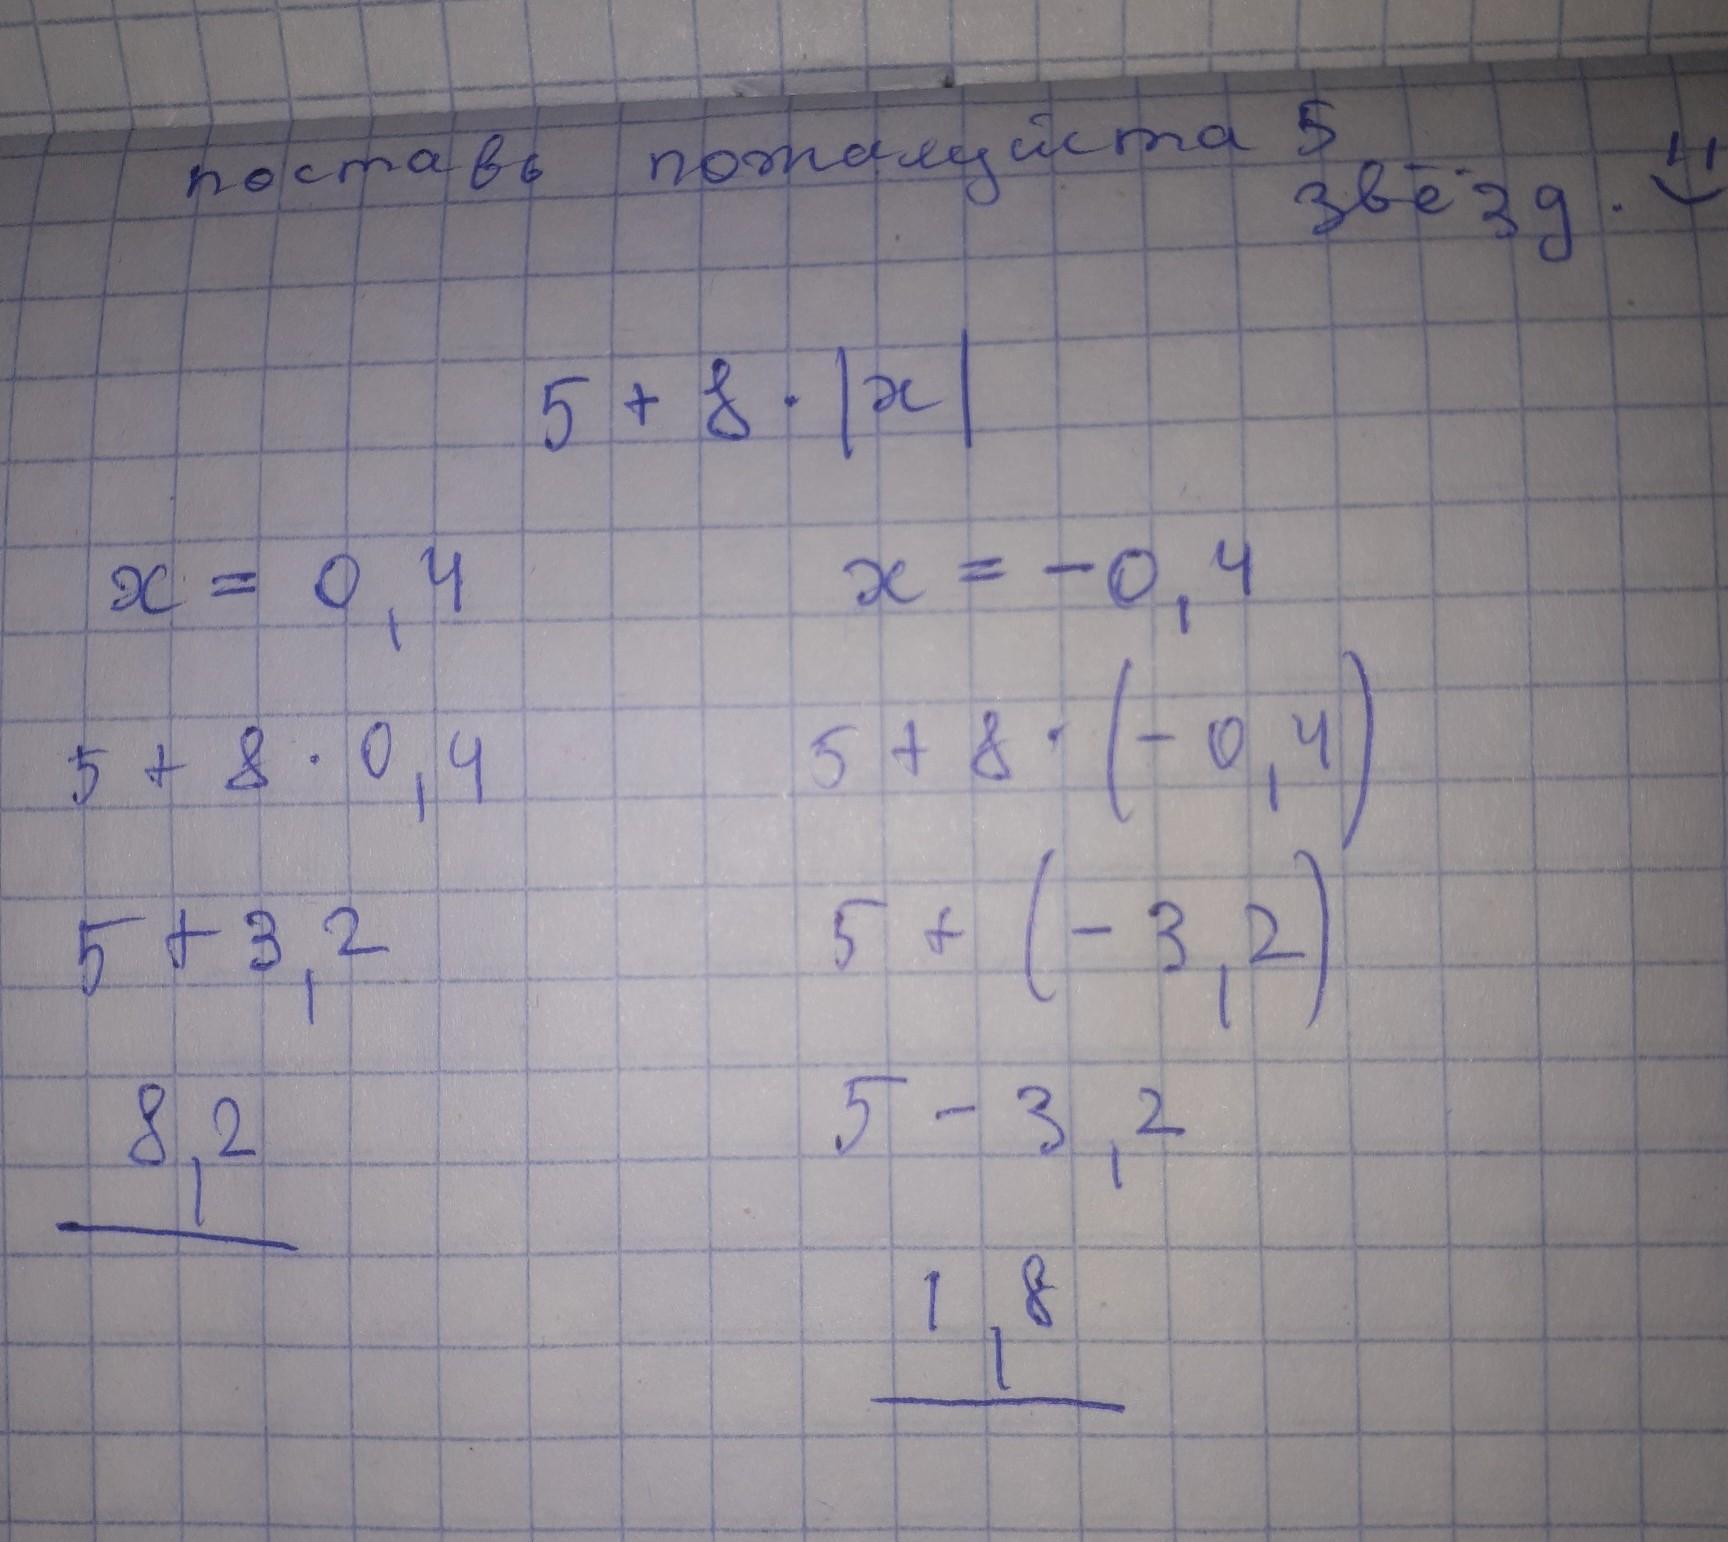 поставь пожалуйста 5
звёзд.
5 + 8 · |x|
x = 0,4
x = -0,4
5 + 8 · 0,4
5 + 8 · (-0,4)
5 + 3,2
5 + (-3,2)
8,2
5 - 3,2
1,8